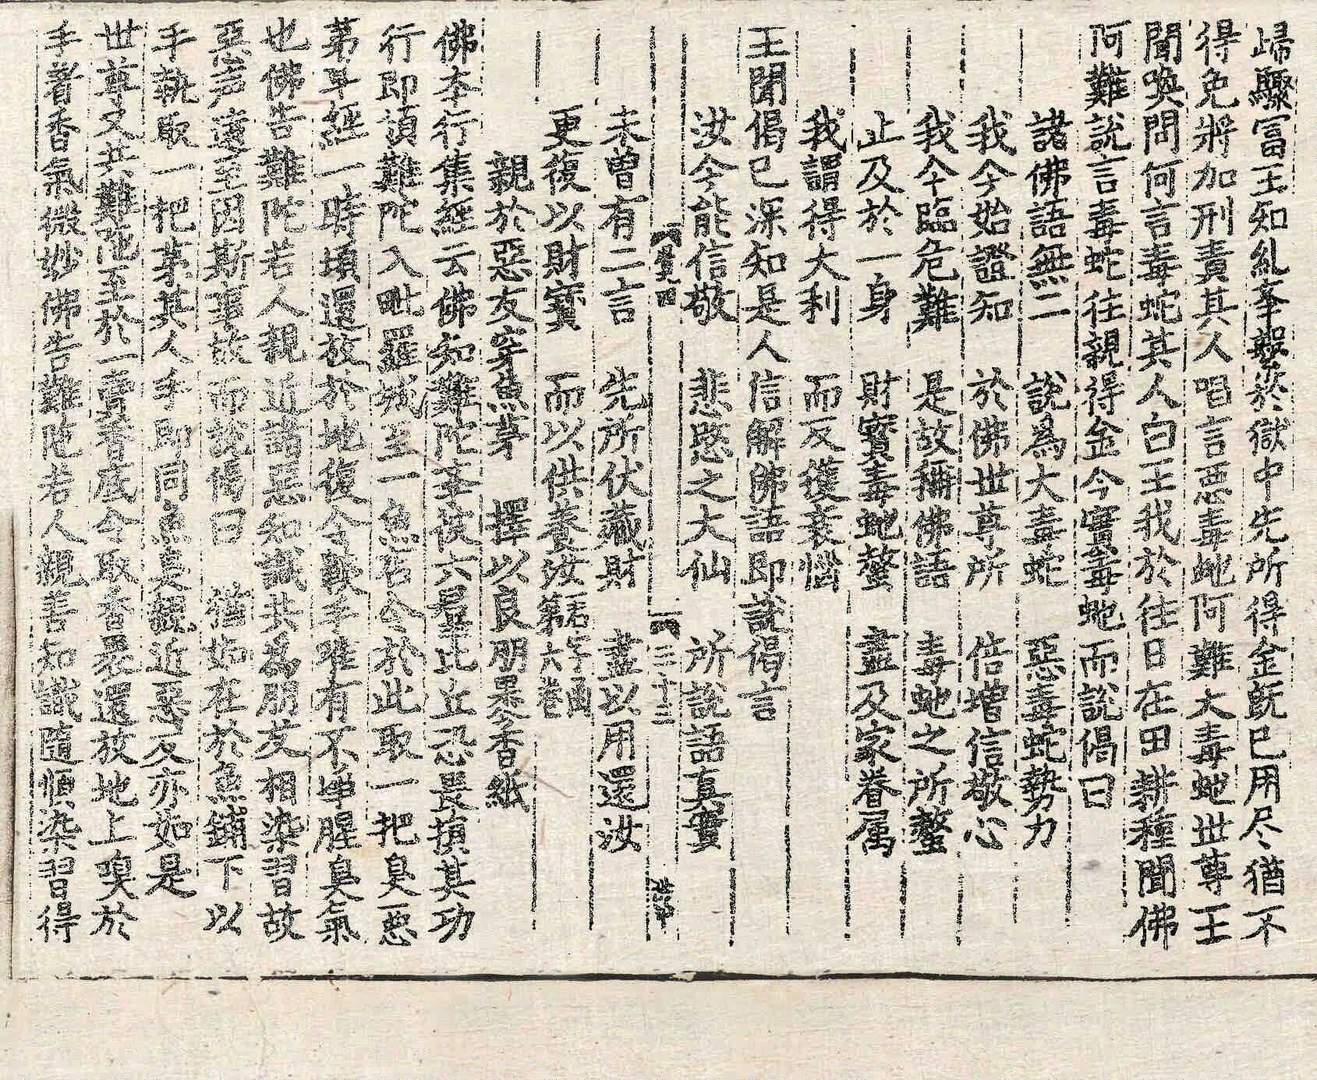 歸驟富王知糺奉繫於獄中先所得金旣已用尽猶不
得免將加刑責其人唱言惡毒虵阿難大毒虵世尊王
聞喚問何言毒蛇其人白王我於往日在田耕種聞佛
阿難說言毒蛇往親得金今實毒虵而說偈曰
諸佛語無二　說為大毒蛇　惡毒蛇勢力
我今始證知　於佛世尊所　倍增信敬心
我今臨危難　是故稱佛語　毒虵之所螫
止及於一身　財寶毒虵螫　盡及家眷属
我謂得大利　而反獲衰惱
王聞偈已深知是人信解佛語即說偈言
汝今能信敬　悲愍之大仙　所說語真實
三十三
未曾有二言　先所伏藏財　盡以用還汝
更復以財寶　而以供養汝 第六卷
親於惡友穿魚茅　擇以良朋果今香紙
佛本行集經云佛知難陀李彼六羣比丘恐畏損其功
行即領難陀入毗羅城至一魚店令於此取一把臭惡
茅草經一時頃還放於地復令歎手唯有不淨腥臭氣
也佛告難陀若人親近諸惡知識共為朋友相染習故
惡声遠至因斯事故而說偈曰　猶如在於魚鋪下以
手執取一把茅其人手即同魚臭親近惡友亦如是
世尊又共難陀至於一賣香店令取香裹還放地上嗅於
手着香氣微妙佛告難陀若人親善知識隨順染習得